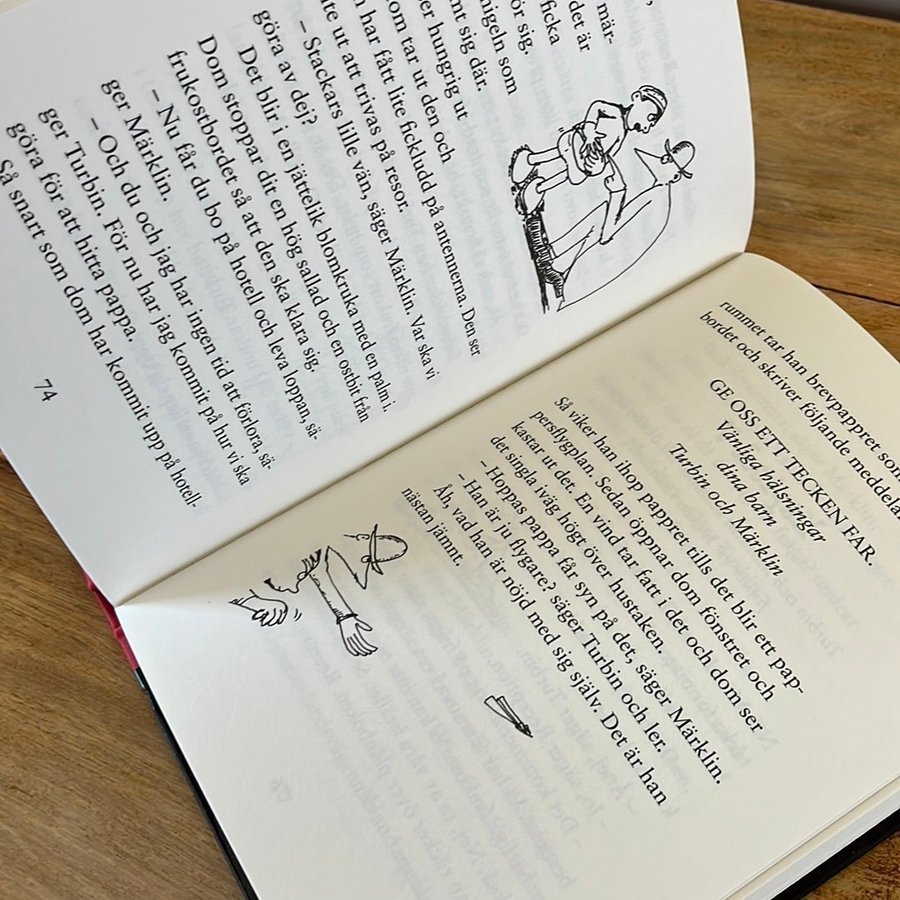 mär-
det är
ficka
ör sig.
nigeln som
mt sig där.
er hungrig ut
om tar ut den och
har fått lite fickludd på antennerna. Den ser
te ut att trivas på resor.
– Stackars lille vän, säger Märklin. Var ska vi
göra av dej?
Det blir i en jättelik blomkruka med en palm i.
Dom stoppar dit en hög sallad och en ostbit från
frukostbordet så att den ska klara sig.
– Nu får du bo på hotell och leva loppan, sä-
ger Märklin.
– Och du och jag har ingen tid att förlora, sä-
ger Turbin. För nu har jag kommit på hur vi ska
göra för att hitta pappa.
Så snart som dom har kommit upp på hotell-
74
rummet tar han brevpappret som
bordet och skriver följande meddela
GE OSS ETT TECKEN FAR.
Vänliga hälsningar
dina barn
Turbin och Märklin
Så viker han ihop pappret tills det blir ett pap-
persflygplan. Sedan öppnar dom fönstret och
kastar ut det. En vind tar fatt i det och dom ser
det singla iväg högt över hustaken.
– Hoppas pappa får syn på det, säger Märklin.
– Han är ju flygare? säger Turbin och ler.
Åh, vad han är nöjd med sig själv. Det är han
nästan jämnt.